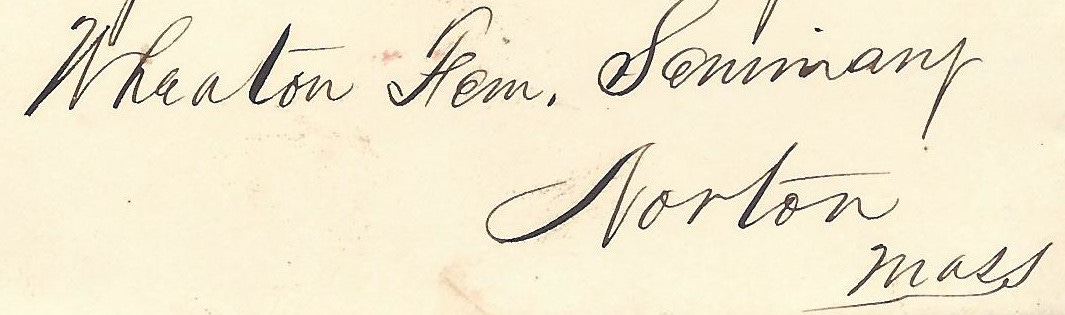 Wheaton Fem. Seminary
Norton
Mass